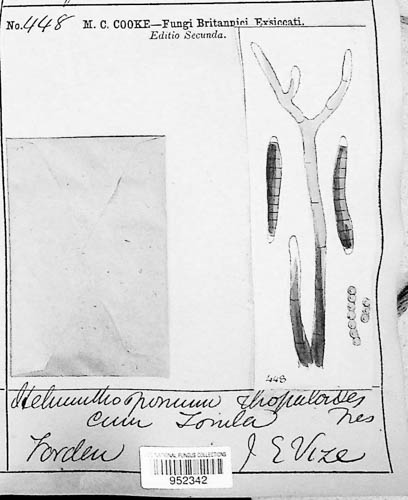 No. 448 M. C. COOKE—Fungi Britannici Exsiccati.
Editio Secunda.
448
Helminthosporium rhopaloides
cum Torula Fres
Forden J E Vize
NATIONAL FUNGUS COLLECTIONS
952342